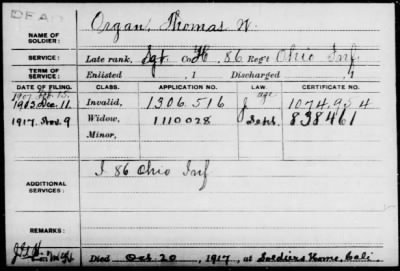 DEAD
NAME OF SOLDIER: Organ, Thomas W.
SERVICE: Late rank, Sgt Co. H, 86 Reg't Ohio Inf.
TERM OF SERVICE: Enlisted , 1 Discharged , 1
DATE OF FILING. CLASS. APPLICATION NO. LAW. CERTIFICATE NO.
1903, Dec. 11 Invalid, 1306.516 age 1074.954
1917, Nov. 9 Widow, 1110028 838461
Minor,
ADDITIONAL SERVICES: I 86 Ohio Inf
REMARKS:
Died Oct. 20, 1917, at Soldiers Home, Cali.